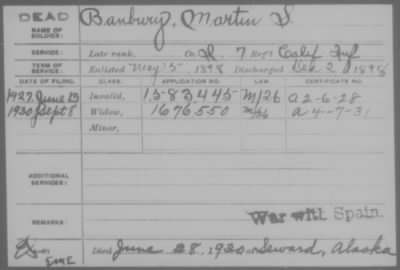 DEAD Banbury, Martin S.
NAME OF SOLDIER:
SERVICE: Late rank, Co. H, 7 Reg't Calif Inf
TERM OF SERVICE: Enlisted May 5, 1898 Discharged Dec 2, 1898
DATE OF FILING. CLASS. APPLICATION NO. LAW. CERTIFICATE NO.
1927 June 13 Invalid, 1583445 M/26 A 2-6-28
1930 Sept 8 Widow, 1676550 M/26 A 4-7-31
Minor,
ADDITIONAL SERVICES:
REMARKS: War with Spain.
Died June 28, 1930 at Seward, Alaska
EME